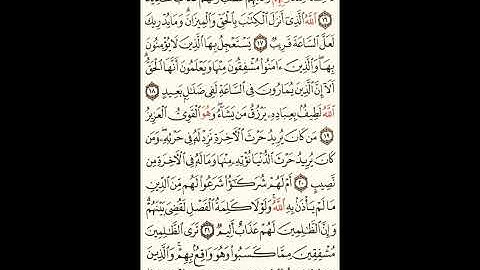 ٱللَّهُ ٱلَّذِىٓ أَنزَلَ ٱلْكِتَٰبَ بِٱلْحَقِّ وَٱلْمِيزَانَ ۗ وَمَا يُدْرِيكَ
لَعَلَّ ٱلسَّاعَةَ قَرِيبٌ ١٧ يَسْتَعْجِلُ بِهَا ٱلَّذِينَ لَا يُؤْمِنُونَ
بِهَا ۖ وَٱلَّذِينَ ءَامَنُوا۟ مُشْفِقُونَ مِنْهَا وَيَعْلَمُونَ أَنَّهَا ٱلْحَقُّ ۗ
أَلَآ إِنَّ ٱلَّذِينَ يُمَارُونَ فِى ٱلسَّاعَةِ لَفِى ضَلَٰلٍۭ بَعِيدٍ ١٨
ٱللَّهُ لَطِيفٌۢ بِعِبَادِهِۦ يَرْزُقُ مَن يَشَآءُ ۖ وَهُوَ ٱلْقَوِىُّ ٱلْعَزِيزُ
١٩ مَن كَانَ يُرِيدُ حَرْثَ ٱلْءَاخِرَةِ نَزِدْ لَهُۥ فِى حَرْثِهِۦ ۖ وَمَن
كَانَ يُرِيدُ حَرْثَ ٱلدُّنْيَا نُؤْتِهِۦ مِنْهَا وَمَا لَهُۥ فِى ٱلْءَاخِرَةِ مِن
نَّصِيبٍ ٢٠ أَمْ لَهُمْ شُرَكَٰٓؤُا۟ شَرَعُوا۟ لَهُم مِّنَ ٱلدِّينِ
مَا لَمْ يَأْذَنۢ بِهِ ٱللَّهُ ۚ وَلَوْلَا كَلِمَةُ ٱلْفَصْلِ لَقُضِىَ بَيْنَهُمْ ۗ
وَإِنَّ ٱلظَّٰلِمِينَ لَهُمْ عَذَابٌ أَلِيمٌ ٢١ تَرَى ٱلظَّٰلِمِينَ
مُشْفِقِينَ مِمَّا كَسَبُوا۟ وَهُوَ وَاقِعٌۢ بِهِمْ ۗ وَٱلَّذِينَ